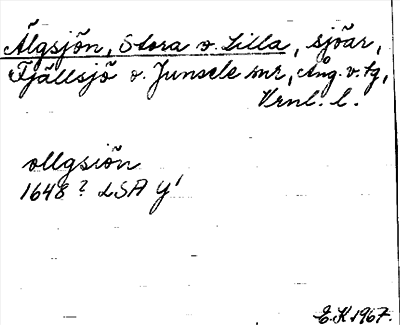 Älgsjön, Stora o. Lilla, sjöar,
Fjällsjö o. Junsele snr, Ång. v. tg,
Vrnl. l.
ollgsiön
1648? LSA Y¹
E.K. 1967.